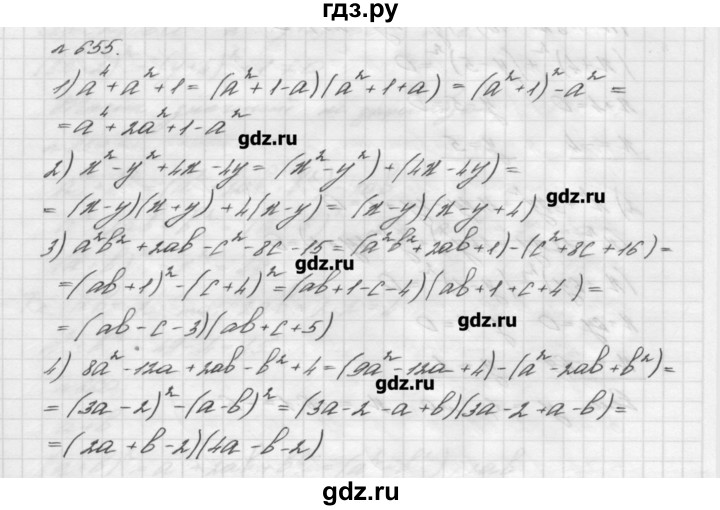 гдз.ру
№ 655.
1) a⁴+a²+1 = (a²+1-a)(a²+1+a) = (a²+1)²-a² =
= a⁴+2a²+1-a²
gdz.ru
2) x²-y²+4x-4y = (x²-y²)+(4x-4y) =
= (x-y)(x+y)+4(x-y) = (x-y)(x-y+4)
gdz.ru
3) a²b²+2ab-c²-8c-15 = (a²b²+2ab+1)-(c²+8c+16) =
gdz.ru
= (ab+1)²-(c+4)² = (ab+1-c-4)(ab+1+c+4) =
= (ab-c-3)(ab+c+5)
gdz.ru
4) 8a²-12a+2ab-b²+4 = (9a²-12a+4)-(a²-2ab+b²) =
gdz.ru
= (3a-2)²-(a-b)² = (3a-2-a+b)(3a-2+a-b) =
= (2a+b-2)(4a-b-2)
gdz.ru